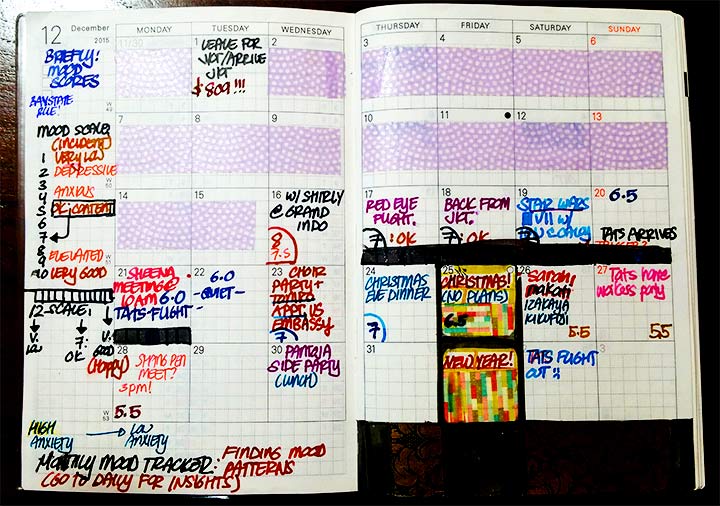 12 December
2015
MONDAY
TUESDAY
WEDNESDAY
THURSDAY
FRIDAY
SATURDAY
SUNDAY
BRIEFLY!
MOOD
SCORES
W
49
MOOD SCALE
(INCIDENT)
1 VERY LOW
2 DEPRESSIVE
3
4 ANXIOUS
5 OK, CONTENT
6
7
8 ELEVATED
9
10 VERY GOOD
12 SCALE:
V. LOW
7: OK
V. GOOD
(HAPPY)
HIGH ANXIETY
LOW ANXIETY
11/30
1 LEAVE FOR
JKT/ARRIVE
JKT
$809!!!
2
3
4
5
6
7
8
9
10
11
12
13
W
50
14
15
16 W/ SHIRLY
@ GRAND
INDO
8
7.5
17
RED EYE
FLIGHT.
7: OK
18
BACK FROM
JKT.
7: OK
19
STAR WARS
VII W/
7
20 6.5
TATS ARRIVES
21 SHEENA
MEETING @
10AM 6.0
TATS FLIGHT
22 6.0
-QUIET-
23 CHOIR
PARTY +
APPT. US
EMBASSY
7
24
CHRISTMAS
EVE DINNER
7
25
CHRISTMAS!
(NO PLANS)
6.5
26
SARAH
MAKATI
IZAKAYA
KIKUFUJI
5.5
27 TATS HAVE
5.5
28
MEET?
3PM!
5.5
W
53
29
30 PANTXA
SIDE PARTY
(LUNCH)
31
NEW YEAR!
TATS FLIGHT
OUT
3
MONTHLY MOOD TRACKER: FINDING MOOD
PATTERNS
(GO TO DAILY FOR INSIGHTS)